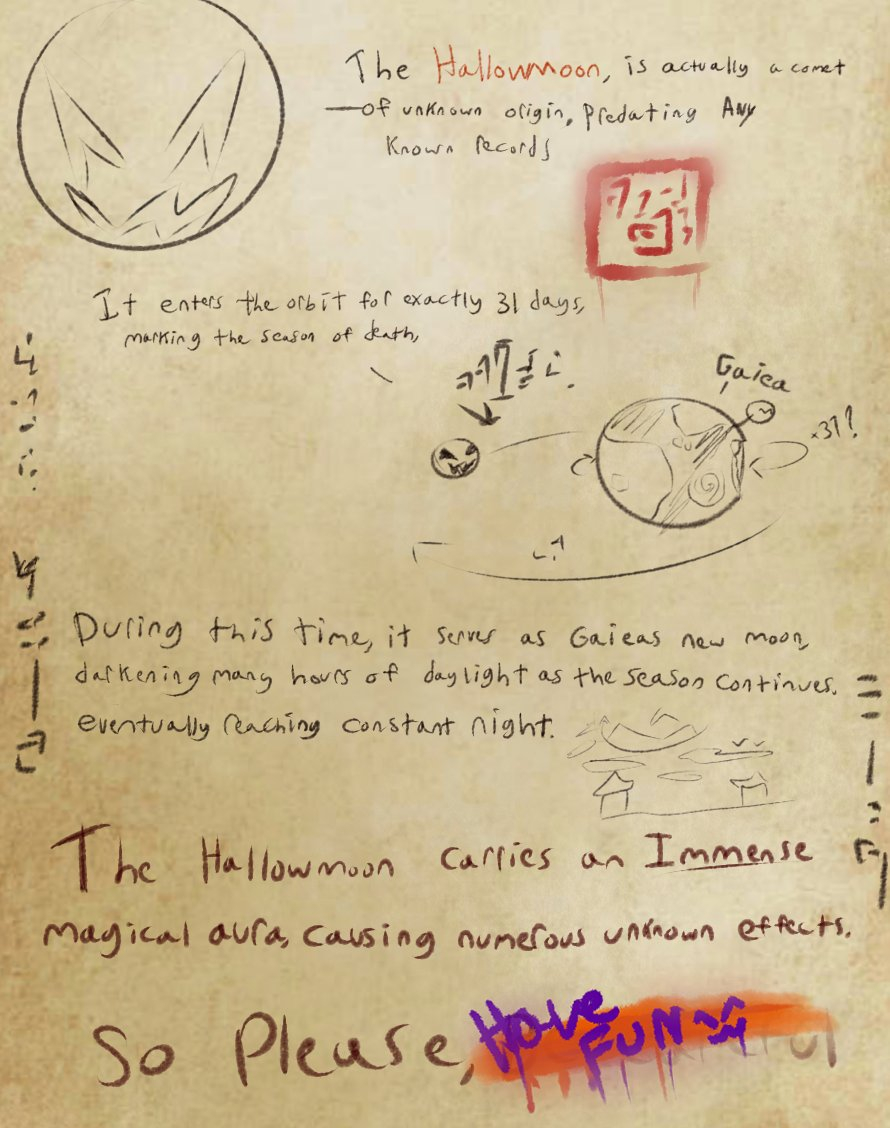 The Hallowmoon, is actually a comet
of unknown origin, predating Any
known records
It enters the orbit for exactly 31 days,
marking the season of death,
Gaiea
×31?
During this time, it serves as Gaieas new moon,
darkening many hours of daylight as the season continues.
eventually reaching constant night.
The Hallowmoon carries an Immense
magical aura, causing numerous unknown effects.
So Please, Have
FUN